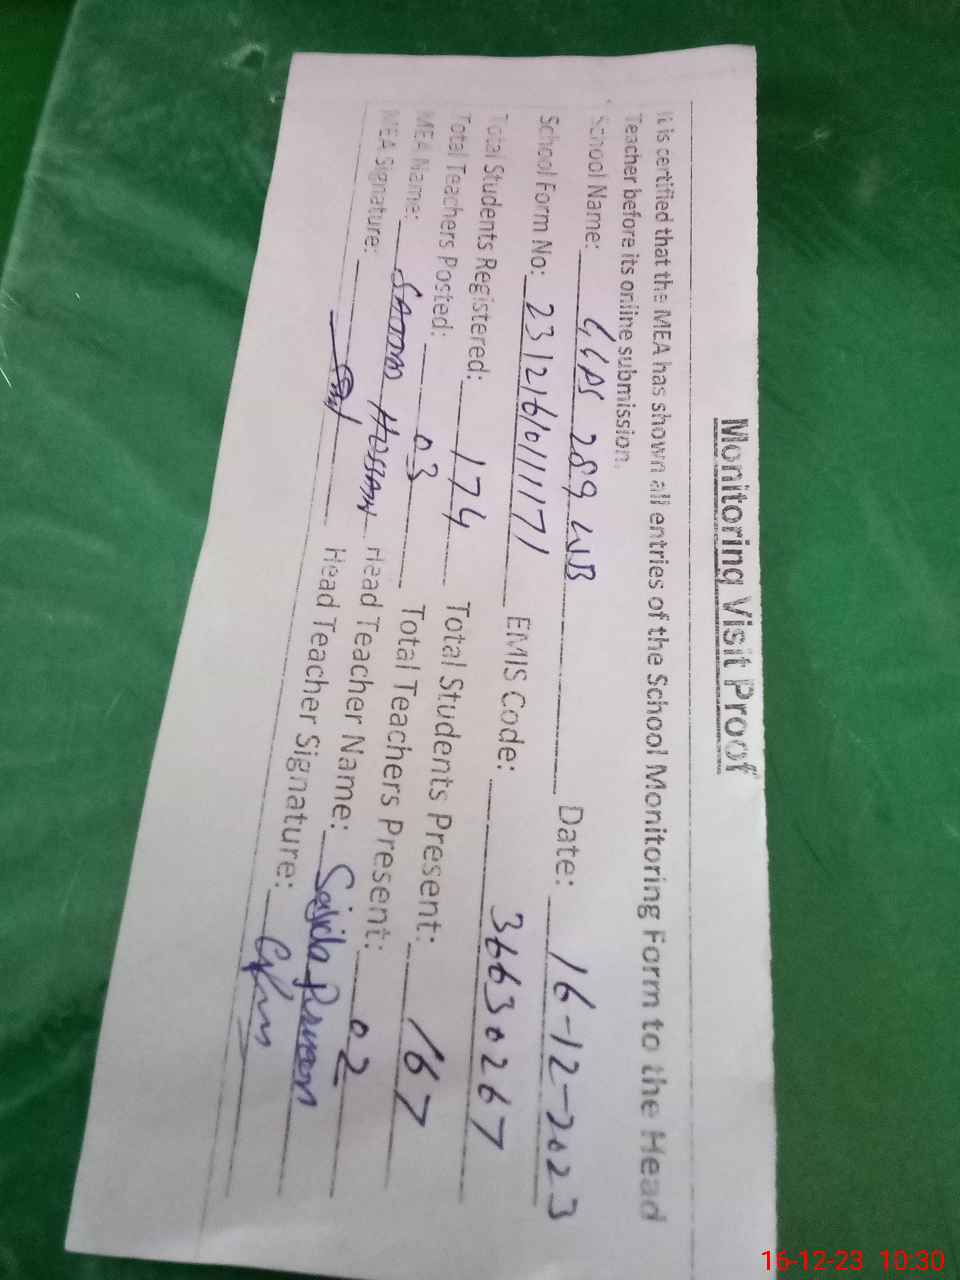 Monitoring Visit Proof
It is certified that the MEA has shown all entries of the School Monitoring Form to the Head
Teacher before its online submission.
School Name: GGPS 289 WB Date: 16-12-2023
School Form No: EMIS Code: 36630267
Total Students Registered: 174 Total Students Present: 167
Total Teachers Posted: 03 Total Teachers Present: 02
MEA Name: Head Teacher Name: Sajida
MEA Signature: Head Teacher Signature:
16-12-23 10:30